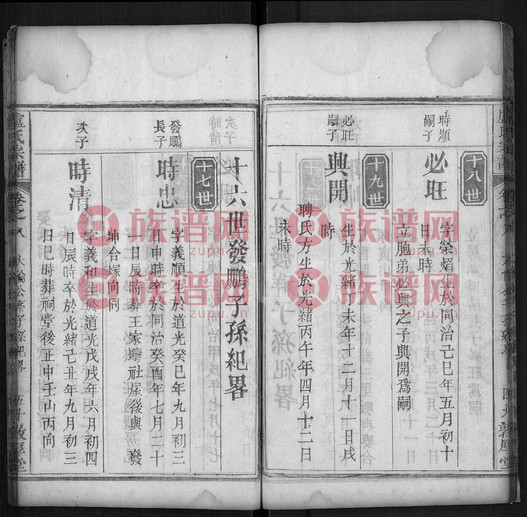 十八世
時順
嗣子
必旺
字榮媚生於同治己巳年五月初十
日未時
立胞弟必興之子興開爲嗣
十九世
必旺
嗣子
興開
生於光緒 未年十二月十一日戌
時
聘氏方生於光緒丙午年四月十二日
未時
十六世發鵬子孫紀畧
十七世
發鵬
長子
時忠
字義順生於道光癸巳年九月初三
日申時卒於同治癸酉年七月二十
一日辰時葬王家 社屋後與發
坤合塚向同
次子
時清
字義和生於道光戊戌年六月初四
日辰時卒於光緒己丑年九月初三
日巳時葬祠堂後正中壬山丙向
盧氏宗譜
卷之八
子孫紀畧
五十
敦厚堂
族譜网
族譜网
族譜网
族譜网